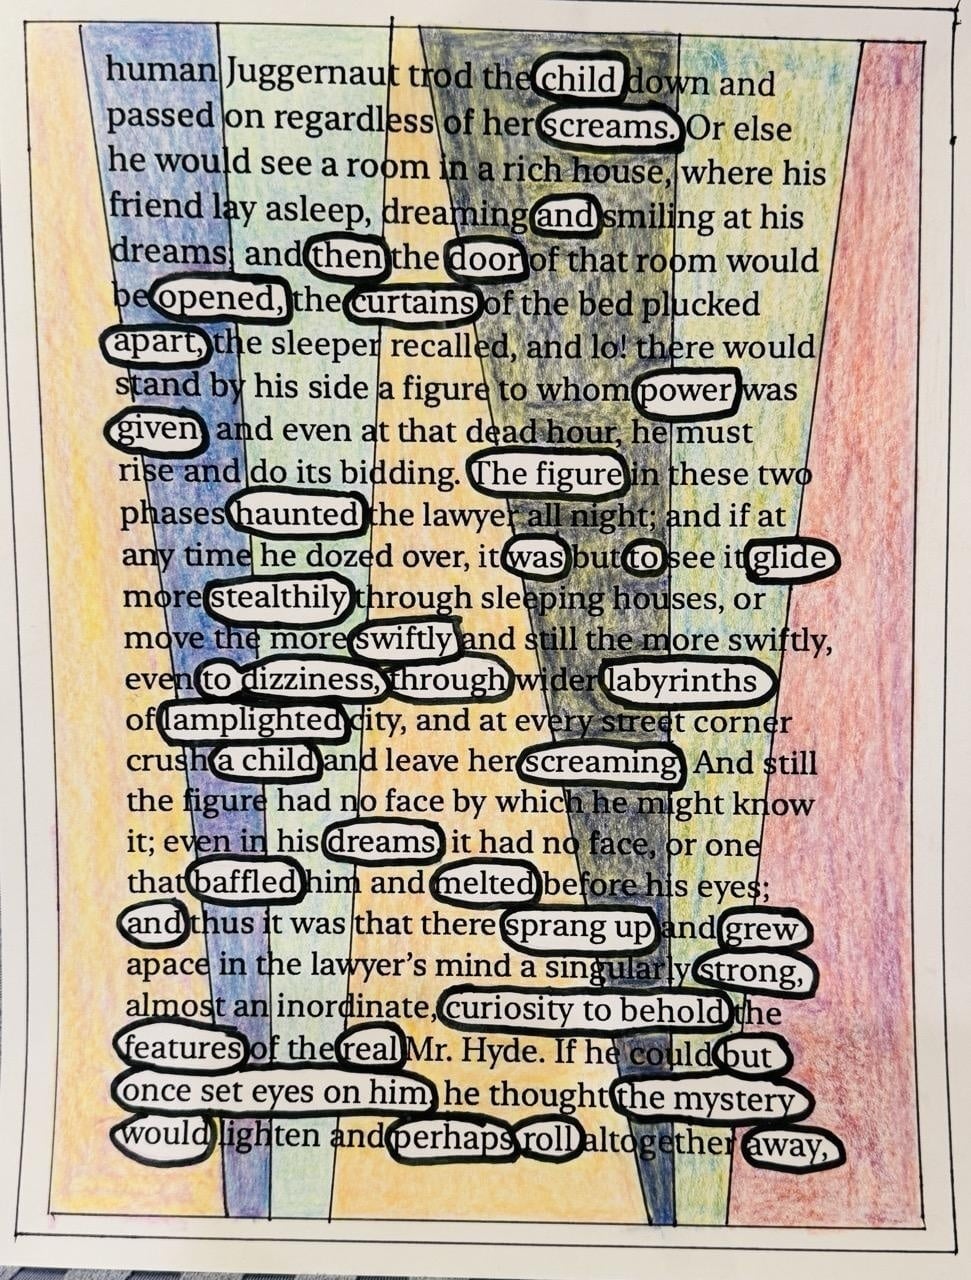 human Juggernaut trod the child down and
passed on regardless of her screams. Or else
he would see a room in a rich house, where his
friend lay asleep, dreaming and smiling at his
dreams; and then the door of that room would
be opened, the curtains of the bed plucked
apart, the sleeper recalled, and lo! there would
stand by his side a figure to whom power was
given and even at that dead hour, he must
rise and do its bidding. The figure in these two
phases haunted the lawyer all night; and if at
any time he dozed over, it was but to see it glide
more stealthily through sleeping houses, or
move the more swiftly and still the more swiftly,
even to dizziness, through wider labyrinths
of lamplighted city, and at every street corner
crush a child and leave her screaming. And still
the figure had no face by which he might know
it; even in his dreams, it had no face, or one
that baffled him and melted before his eyes;
and thus it was that there sprang up and grew
apace in the lawyer's mind a singularly strong,
almost an inordinate, curiosity to behold the
features of the real Mr. Hyde. If he could but
once set eyes on him, he thought the mystery
would lighten and perhaps roll altogether away,